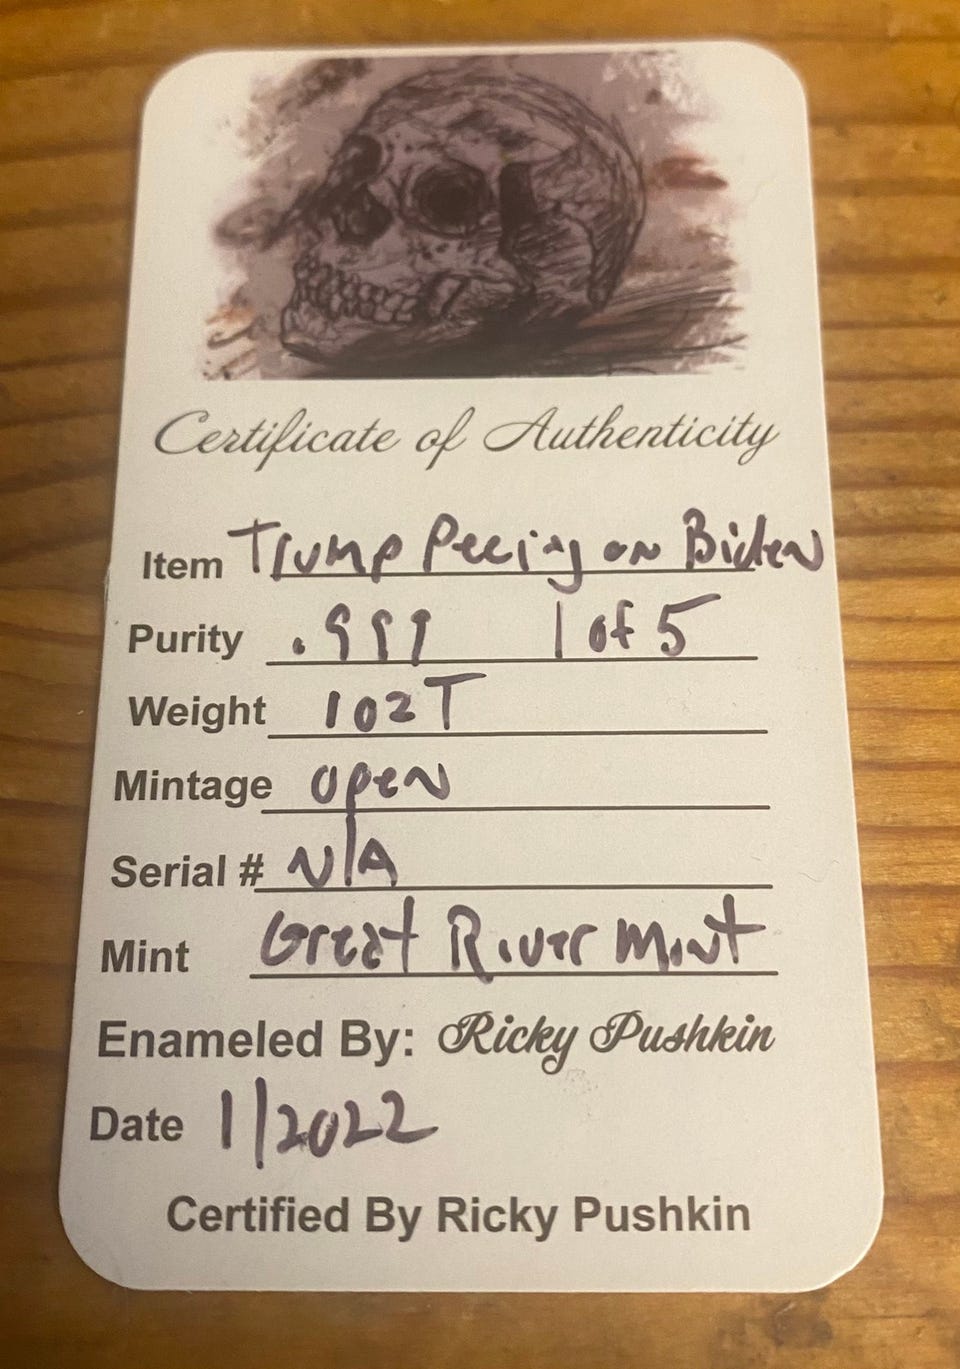 Certificate of Authenticity
Item Trump Peeing on Biden
Purity .999 1 of 5
Weight 1 OZ T
Mintage open
Serial # N/A
Mint Great River Mint
Enameled By: Ricky Pushkin
Date 1/2022
Certified By Ricky Pushkin